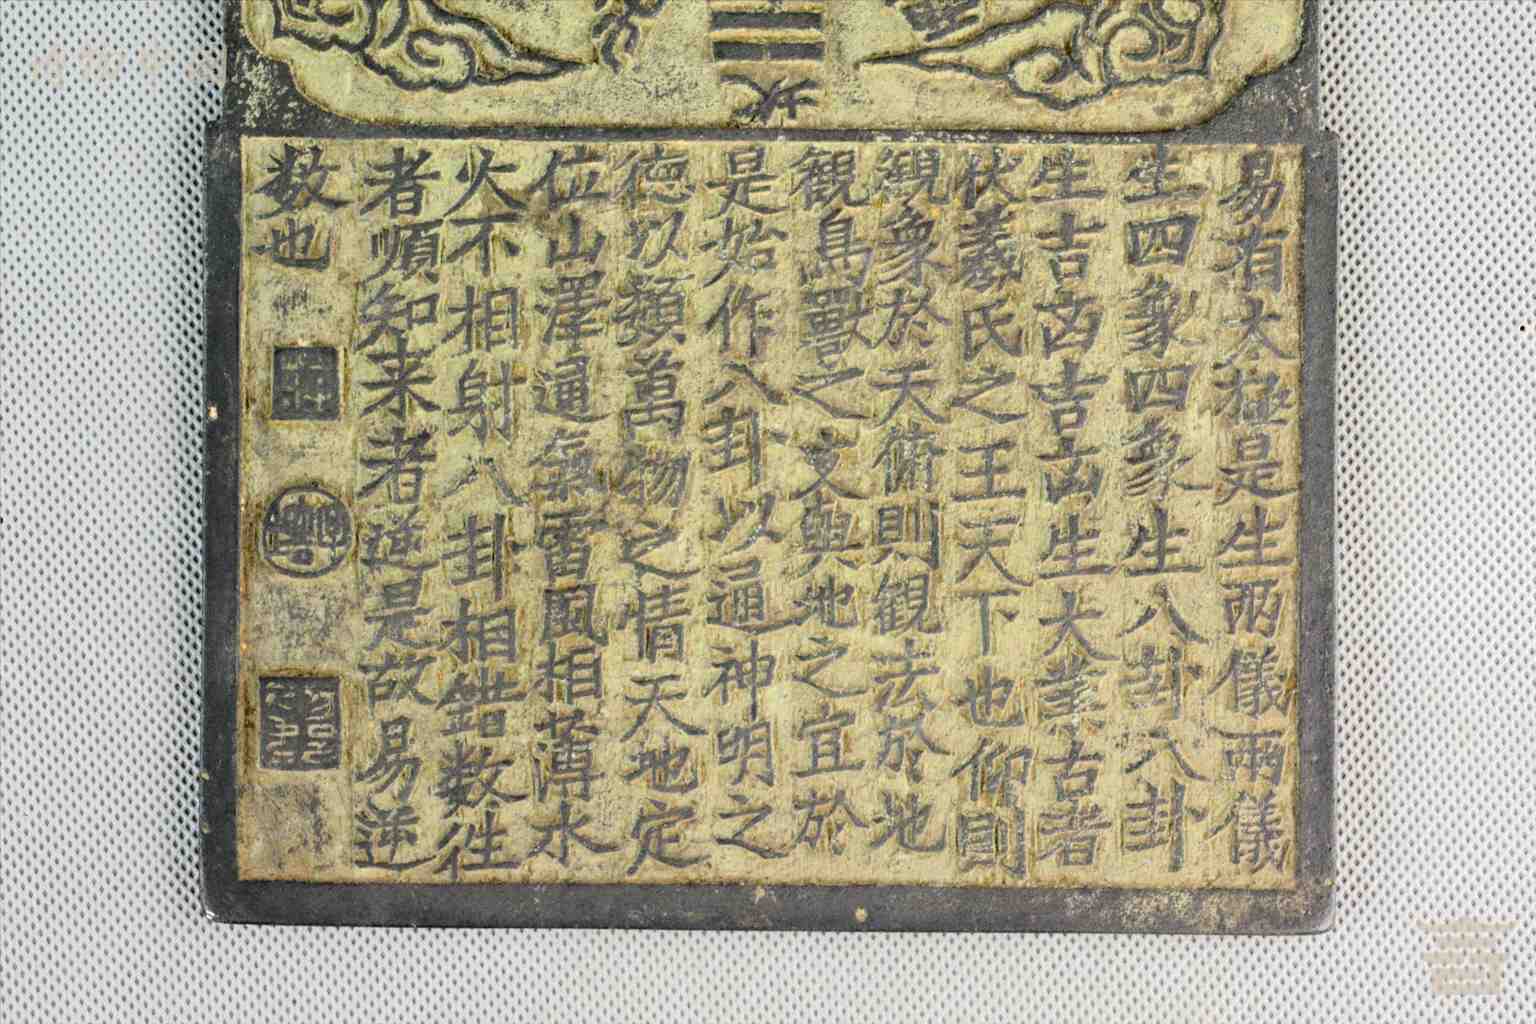 易有太極是生兩儀兩儀
生四象四象生八卦八卦
生吉凶吉凶生大業古者
伏羲氏之王天下也仰則
觀象於天俯則觀法於地
觀鳥獸之文與地之宜於
是始作八卦以通神明之
德以類萬物之情天地定
位山澤通氣雷風相薄水
火不相射八卦相錯数往
者順知来者逆是故易逆
数也